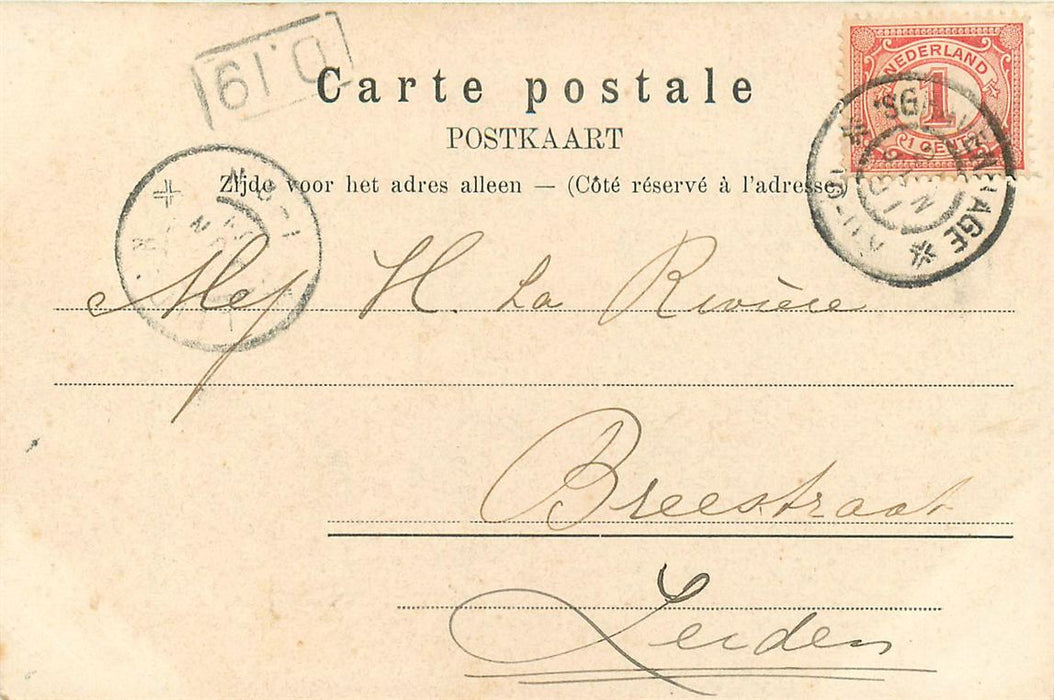 D.19
Carte postale
POSTKAART
Zijde voor het adres alleen — (Côté réservé à l'adresse
NEDERLAND
1
1 CENT
'SGRAVENHAGE
Mej H. La Rivière
Breestraat
Leiden